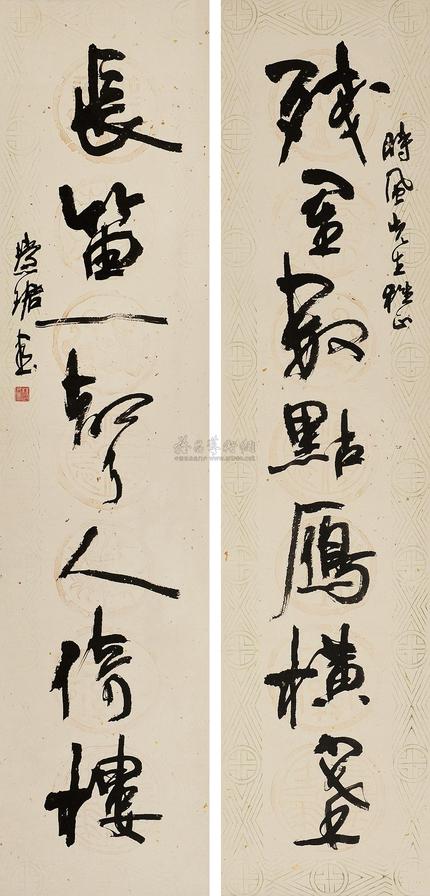 殘星數點鴈橫塞
時風先生雅正
長笛一聲人倚樓